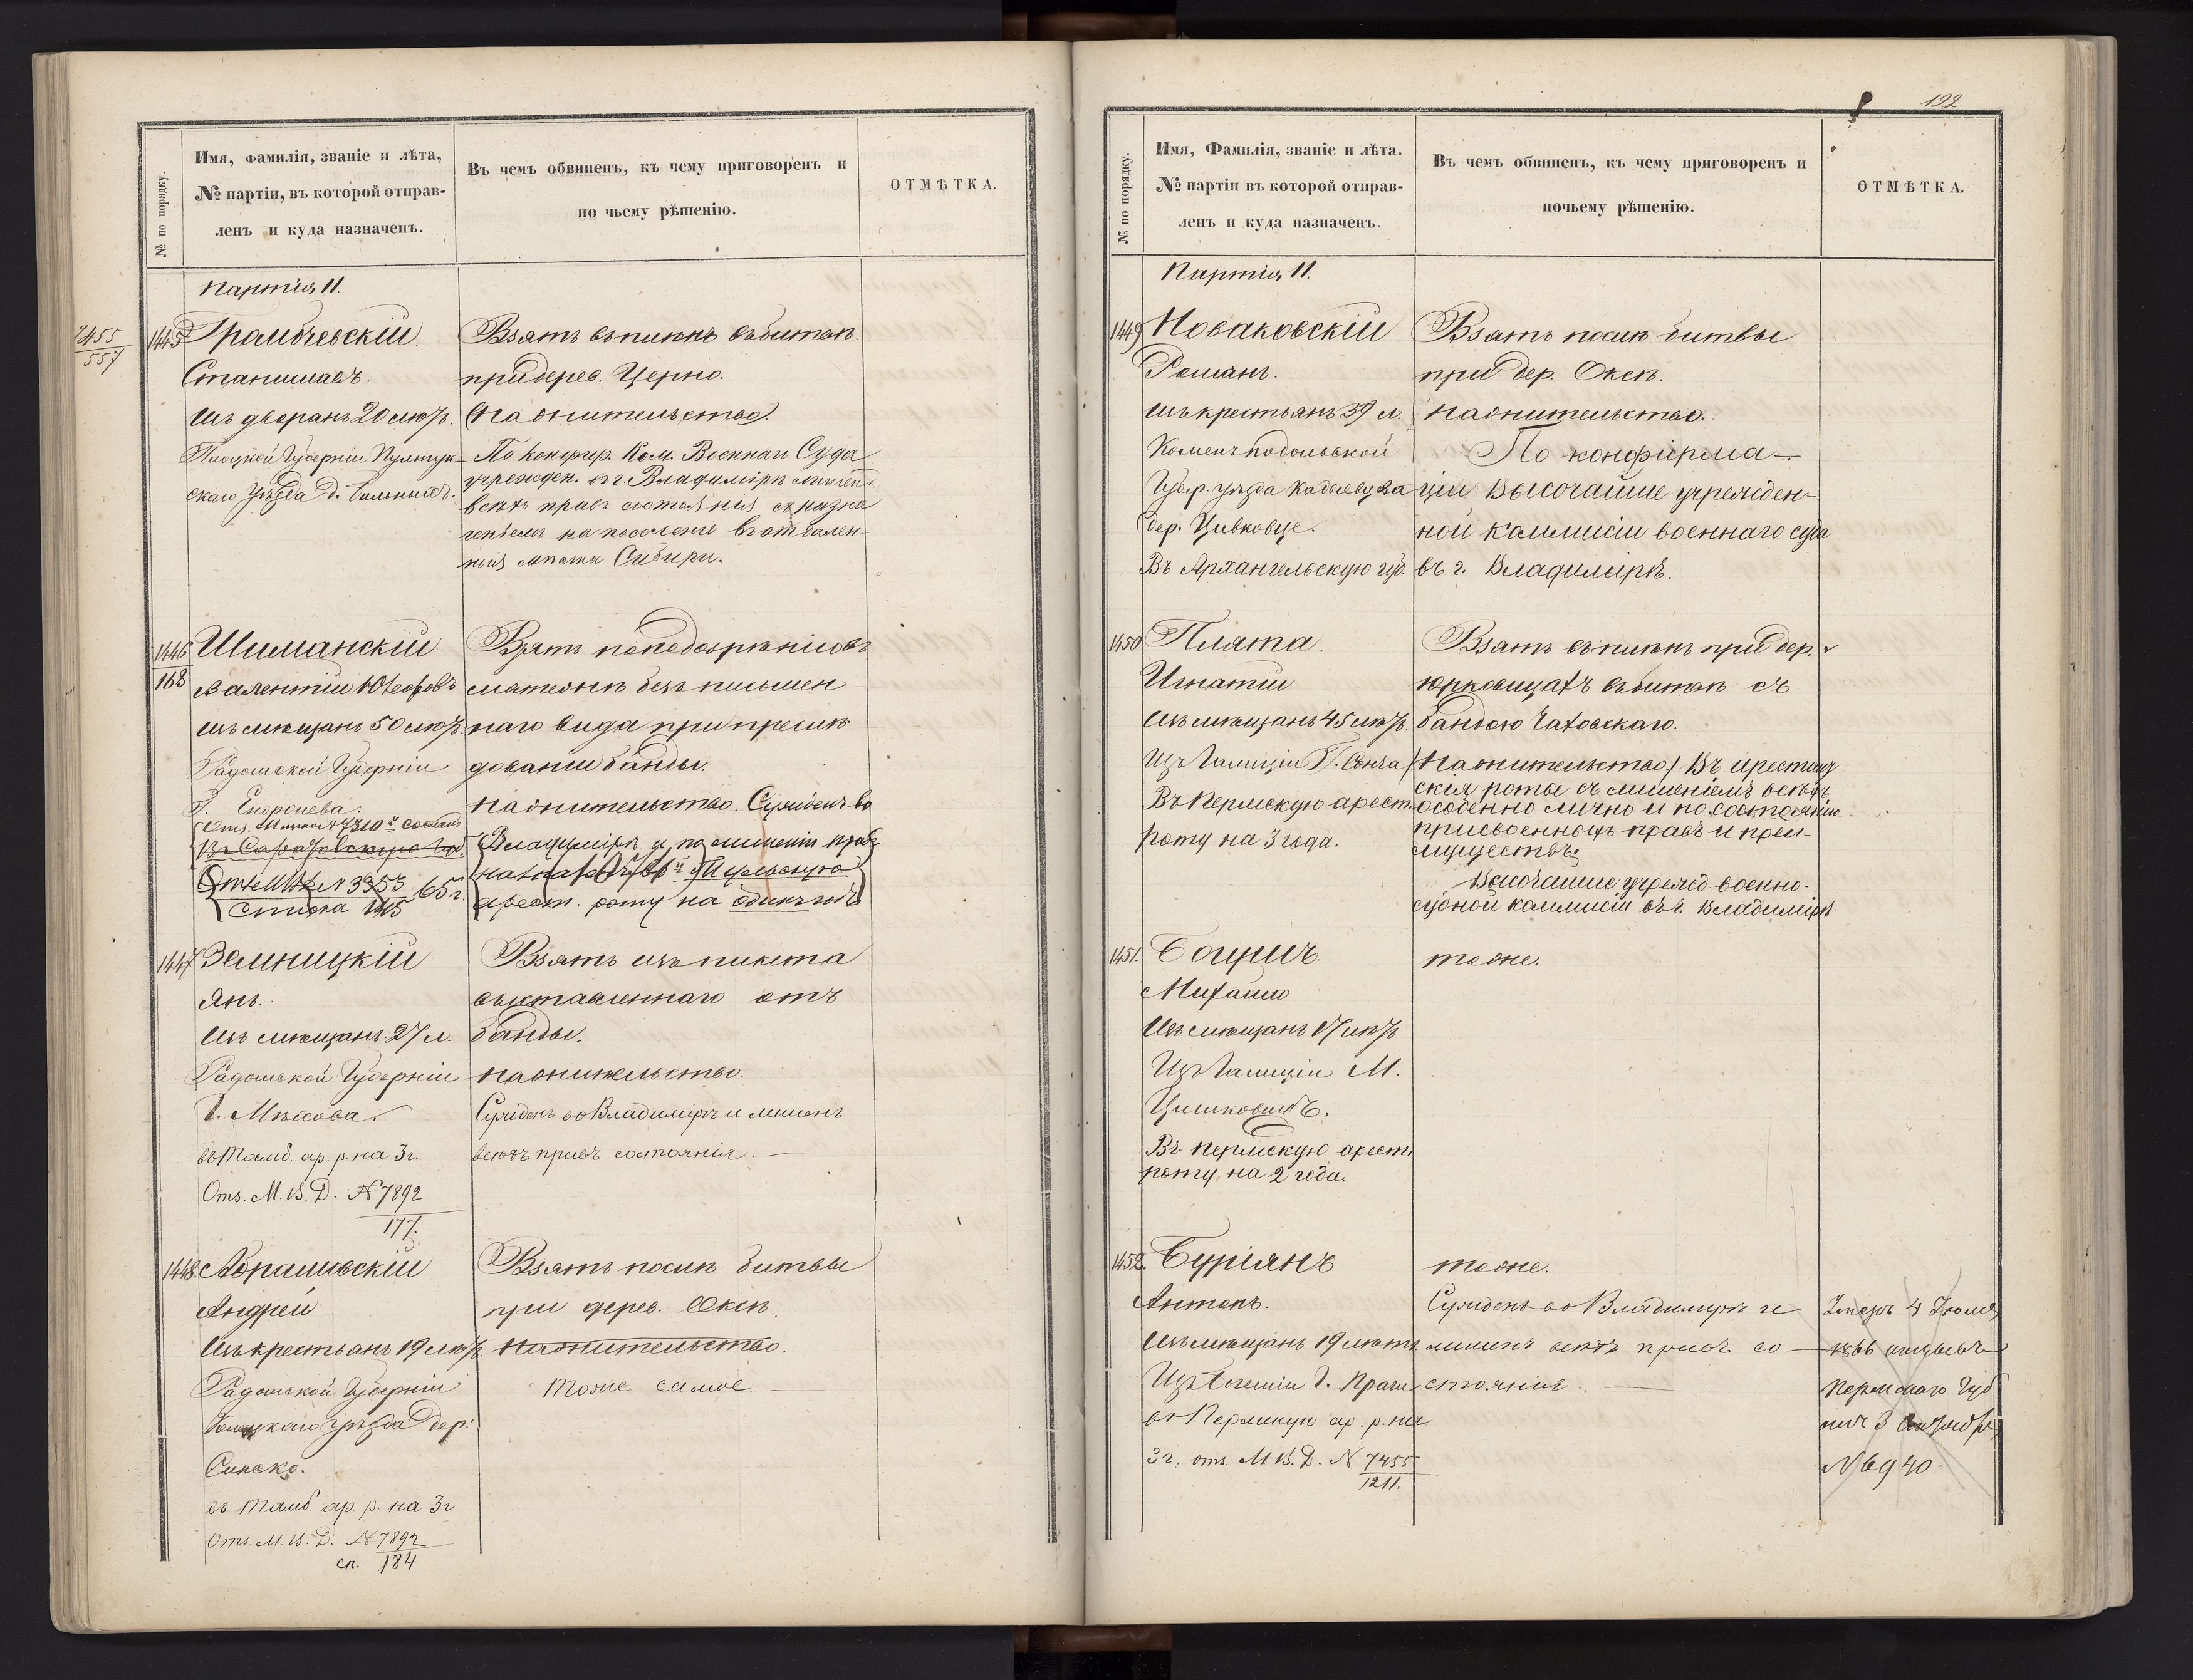 Имя, фамилія, званіе и лѣта,
№ партіи, въ которой отправ-
ленъ и куда назначенъ.
№ по порядку.
Въ чемъ обвиненъ, къ чему приговоренъ и
по чьему рѣшенію.
ОТМѢТКА.
Партія 11.
7455
557
1445 Грамбчевскій
Станиславъ.
Изъ дворянъ 20 лѣтъ.
Плоцкой Губерніи Пултуск-
скаго Уѣзда д.
Взятъ въ плѣнъ въ битвѣ
при дерев. Церно.
(На жительство)
По Конфир. Ком. Военнаго Суда
учрежден. въ г. Владимірѣ лишенъ
всѣхъ правъ состоянія съ назна
ченіемъ на поселеніе въ отдален-
ныя мѣста Сибири.
1446
168
Шиманскій
Валентій
изъ мѣщанъ 50 лѣтъ.
Радомской Губерніи
Отз. № 7310
Въ Саратовскую губ.
Отз. МВД № 3353 65 г.
списка 1415
Взятъ по подозрѣнію въ
мятежѣ безъ письмен
наго вида при преслѣ
дованіи банды.
на жительство. Сужденъ во
Владимірѣ и, по лишеніи правъ
арест. роту на одинъ годъ
1447 Земницкій
Янъ.
Изъ мѣщанъ 27 л.
Радомской Губерніи
Г. Мѣхова.
въ Тамб. ар. р. на 3 г.
Отз. М. В. Д. № 7892
177.
Взятъ изъ пикета
выставленнаго отъ
банды.
на жительство.
Сужденъ во Владимірѣ и лишенъ
всѣхъ правъ состоянія. —
1448. Абрамовскій
Андрей
Изъ крестьянъ 19 лѣтъ.
Радомской Губерніи
уѣзда дер:
Синско.
въ Тамб. ар. р. на 3 г
Отз. М. В. Д. № 7892
сп. 184
Взятъ послѣ битвы
при дерев. Оксѣ.
На жительство.
Тоже самое. —
192
Имя, Фамилія, званіе и лѣта.
№ партіи въ которой отправ-
ленъ и куда назначенъ.
№ по порядку.
Въ чемъ обвиненъ, къ чему приговоренъ и
почьему рѣшенію.
ОТМѢТКА.
Партія 11.
1449 Новаковскій
Романъ.
изъ крестьянъ 39 л.
Каменъ подольской
Губер. уѣзда
дер. Цивковце.
Въ Архангельскую губ.
Взятъ послѣ битвы
при дер. Оксѣ.
на жительство.
По конфирма-
ціи Высочайше учрежден-
ной коммисіи военнаго суда
въ г. Владимірѣ.
1450 Плята.
Игнатій
Изъ мѣщанъ 45 лѣтъ.
Изъ Галиціи Г.
Въ Пермскую арест.
роту на 3 года.
Взятъ въ плѣнъ при дер.
Юрковицахъ въ битвѣ съ
бандою Чаховскаго.
(На жительство) Въ арестант
скія роты съ лишеніемъ всѣхъ
особенно лично и по состоянію
присвоенныхъ правъ и преи-
муществъ.
Высочайше учрежд. военно-
судной коммисіи въ г. Владимірѣ
1451. Богушъ.
Михайло
Изъ мѣщанъ 17 лѣтъ
Изъ Галиціи М.
Въ Пермскую арест.
роту на 2 года.
тоже.
1452. Буріянъ
Антонъ.
Изъ мѣщанъ 19 лѣтъ
Изъ Богеміи Г. Праги
въ Пермскую ар. р. на
3 г. отз. М. В. Д. № 7455
1211.
тоже.
Сужденъ во Владимірѣ и
лишенъ всѣхъ правъ со-
стоянія. —
4 Іюля
1866
Пермскаго Губ
№ 6940